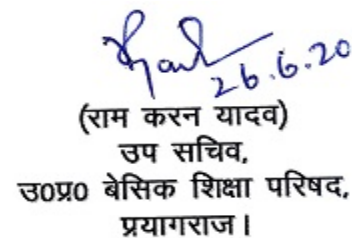 26.6.20
(राम करन यादव)
उप सचिव,
उ०प्र० बेसिक शिक्षा परिषद,
प्रयागराज।